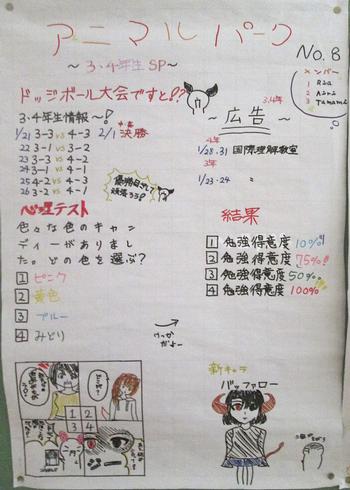 アニマルパーク
～3・4年生SP～
No.8
メンバー
1 Risa
2
3 Tamami
ドッジボール大会ですと!?
3・4年生情報～!
1/21 3-3 vs 4-3
22 3-1 vs 3-2
23 3-3 vs 4-2
24 3-1 vs 4-1
25 4-2 vs 4-3
26 3-2 vs 4-1
2/1 決勝
優勝目ざして
～広告～
3.4年
4年
1/28.31 国際理解教室
3年
1/23.24 〃
心理テスト
色々な色のキャン
ディーがありまし
た。どの色を選ぶ?
1 ピンク
2 黄色
3 ブルー
4 みどり
けっか
だよー
結果
1 勉強得意度 10%
2 勉強得意度 75%!
3 勉強得意度 50%。
4 勉強得意度 100%
1 2
3 4
ジー
新キャラ
バッファロー